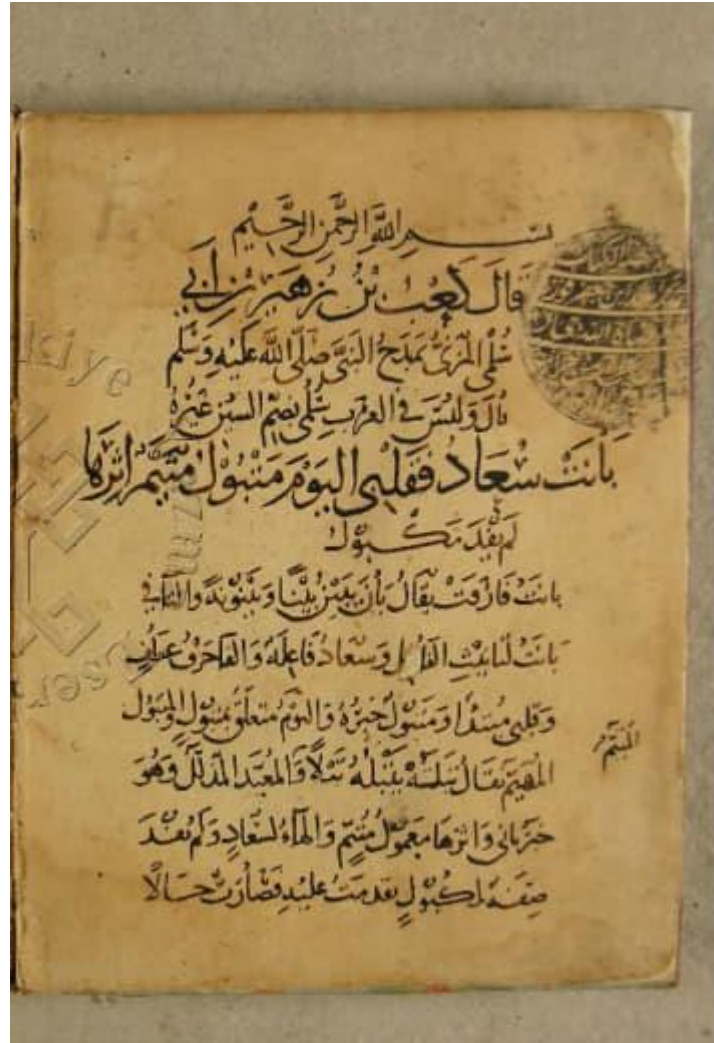 بسم الله الرحمن الرحيم
قال كعب بن زهير بن أبي
سُلمى المزني يمدح النبي صلى الله عليه وسلم
قال وليس في العرب سُلمى بضم السين غيره
بانت سعاد فقلبي اليوم متبول متيم إثرها
لم يفد مكبول
بانت فارقت يقال بان يبين بينا وبينونة والتاء في
بانت لتانيث الفاعل وسعاد فاعلة والفا حرف عطف
وقلبي مبتدأ ومتبول خبره واليوم متعلق بمتبول والمتبول
المهيم يقال تبلته يتبله تبلا والمعبد المذلل وهو
المتيم
خبر ثاني واثرها معمول متيم والهاء لسعاد ولم يفد
صفة لمكبول تقدمت عليه فصارت حالا
kiye